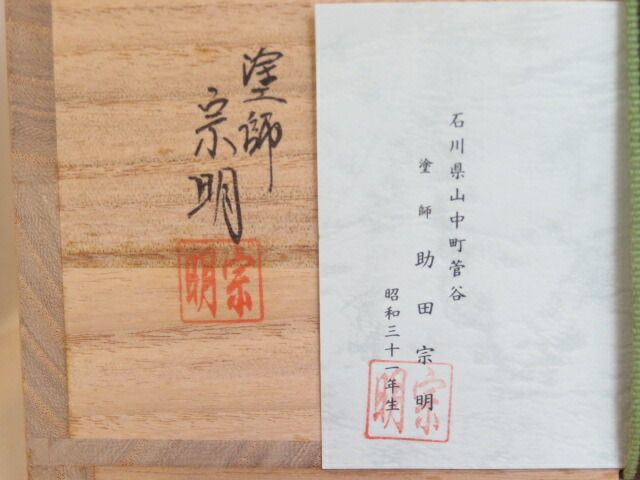 塗師
宗明
宗明
石川県山中町菅谷
塗師 助田宗明
昭和三十一年生
宗明